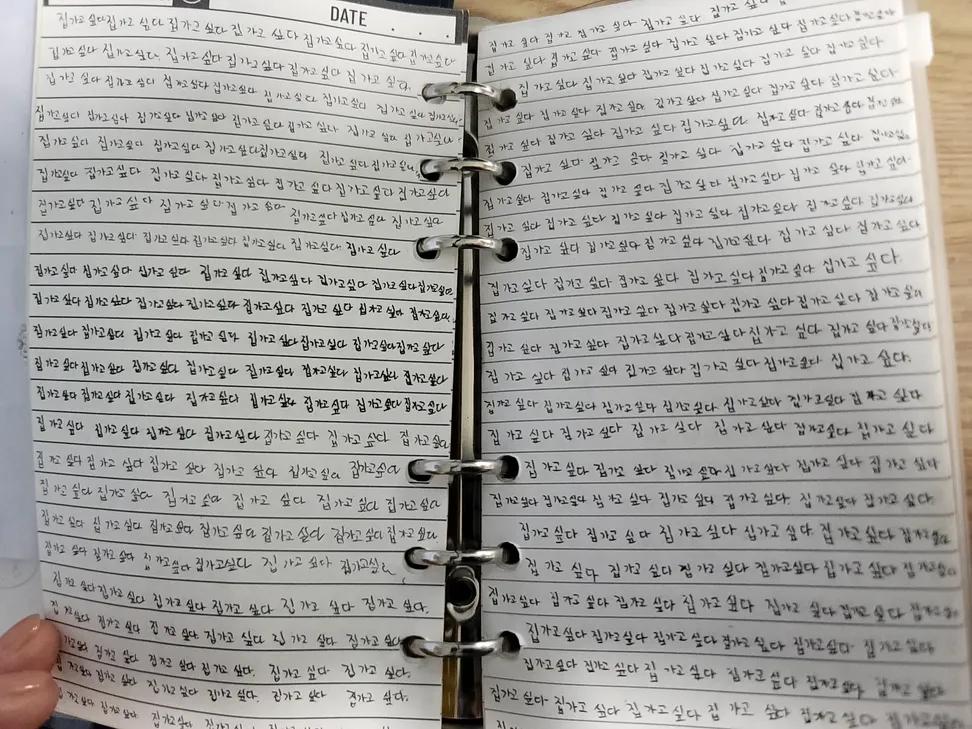 DATE
집가고싶다 집가고 싶다 집가고 싶다 집가고 싶다 집가고싶다 집가고 싶다 집가고싶다
집가고 싶다 집가고싶다. 집가고 싶다 집가고싶다 집가고싶다 집가고 싶다.
집가고 싶다 집가고 싶다 집가고싶다 집가고싶다 집가고 싶다 집가고싶다 집가고 싶다 집가고싶다
집가고싶다 집가고싶다 집가고싶다 집가고 싶다 집가고싶다 집가고 싶다 집가고 싶다 집가고싶다
집가고싶다 집가고싶다 집가고싶다 집가고싶다 집가고싶다 집가고 싶다 집가고싶다
집가고싶다 집가고싶다 집가고싶다 집가고싶다 집가고 싶다 집가고 싶다 집가고싶다
집가고싶다 집가고싶다 집가고 싶다 집가고 싶다 집가고싶다 집가고 싶다 집가고 싶다
집가고싶다 집가고싶다 집가고 싶다 집가고싶다 집가고싶다 집가고싶다 집가고 싶다
집가고싶다 집가고싶다 집가고 싶다 집가고 싶다 집가고싶다 집가고싶다 집가고싶다 집가고싶다
집가고 싶다 집가고싶다 집가고싶다 집가고싶다 집가고싶다 집가고 싶다 집가고 싶다 집가고싶다
집가고싶다 집가고싶다 집가고 싶다 집가고 싶다 집가고 싶다 집가고싶다 집가고싶다 집가고싶다
집가고 싶다 집가고싶다 집가고 싶다 집가고 싶다 집가고싶다 집가고싶다 집가고싶다 집가고싶다
집가고싶다 집가고싶다 집가고싶다 집가고싶다 집가고 싶다 집가고싶다 집가고싶다 집가고싶다
집가고 싶다 집가고싶다 집가고싶다 집가고싶다 집가고 싶다 집가고 싶다 집가고싶다
집가고 싶다 집가고 싶다 집가고 싶다 집가고 싶다 집가고싶다 집가고싶다
집가고 싶다 집가고 싶다 집가고 싶다 집가고 싶다 집가고싶다 집가고싶다
집가고싶다 집가고 싶다 집가고싶다 집가고싶다 집가고싶다 집가고싶다 집가고싶다
집가고 싶다 집가고 싶다 집가고싶다 집가고싶다 집가고 싶다 집가고싶다
집가고 싶다 집가고싶다 집가고 싶다 집가고 싶다 집가고 싶다 집가고 싶다.
집가고싶다 집가고싶다 집가고 싶다 집가고 싶다 집가고 싶다 집가고 싶다
집가고싶다 집가고 싶다 집가고 싶다 집가고 싶다. 집가고 싶다 집가고 싶다.
집가고싶다 집가고싶다 집가고 싶다 집가고 싶다. 집가고 싶다 집가고 싶다.
집가고 싶다 집가고 싶다 집가고싶다
집가고 싶다 집가고 싶다 집가고 싶다 집가고 싶다
집가고 싶다 집가고 싶다 집가고 싶다 집가고 싶다 집가고 싶다 집가고싶다
집가고 싶다 집가고 싶다 집가고 싶다 집가고 싶다 집가고 싶다 집가고 싶다
집가고 싶다 집가고싶다 집가고 싶다 집가고 싶다 집가고싶다 집가고 싶다
집가고 싶다 집가고싶다 집가고싶다 집가고싶다 집가고싶다 집가고싶다
집가고 싶다 집가고 싶다 집가고 싶다 집가고싶다 집가고 싶다 집가고싶다
집가고싶다 집가고싶다 집가고 싶다 집가고 싶다 집가고싶다 집가고 싶다 집가고싶다
집가고 싶다 집가고 싶다 집가고 싶다 집가고싶다 집가고 싶다 집가고 싶다
집가고싶다 집가고 싶다 집가고 싶다 집가고싶다 집가고 싶다 집가고 싶다.
집가고 싶다 집가고싶다 집가고 싶다 집가고 싶다 집가고싶다 집가고 싶다
집가고 싶다 집가고싶다 집가고 싶다 집가고싶다 집가고 싶다 집가고 싶다
집가고 싶다 집가고 싶다 집가고 싶다 집가고싶다 집가고 싶다.
집가고 싶다 집가고싶다 집가고싶다 집가고싶다 집가고싶다 집가고싶다
집가고 싶다 집가고 싶다 집가고 싶다 집가고 싶다 집가고싶다 집가고 싶다
집가고싶다 집가고 싶다 집가고 싶다 집가고 싶다 집가고 싶다
집가고싶다 집가고싶다 집가고 싶다 집가고 싶다 집가고 싶다. 집가고싶다 집가고 싶다.
집가고싶다 집가고 싶다 집가고 싶다 집가고 싶다 집가고 싶다
집가고 싶다 집가고 싶다 집가고 싶다 집가고싶다 집가고싶다
집가고싶다 집가고 싶다 집가고 싶다 집가고싶다 집가고 싶다 집가고싶다
집가고싶다 집가고싶다 집가고 싶다 집가고싶다 집가고싶다 집가고 싶다
집가고싶다 집가고 싶다 집가고 싶다 집가고싶다 집가고싶다 집가고 싶다
집가고싶다 집가고 싶다 집가고싶다 집가고 싶다 집가고 싶다 집가고싶다